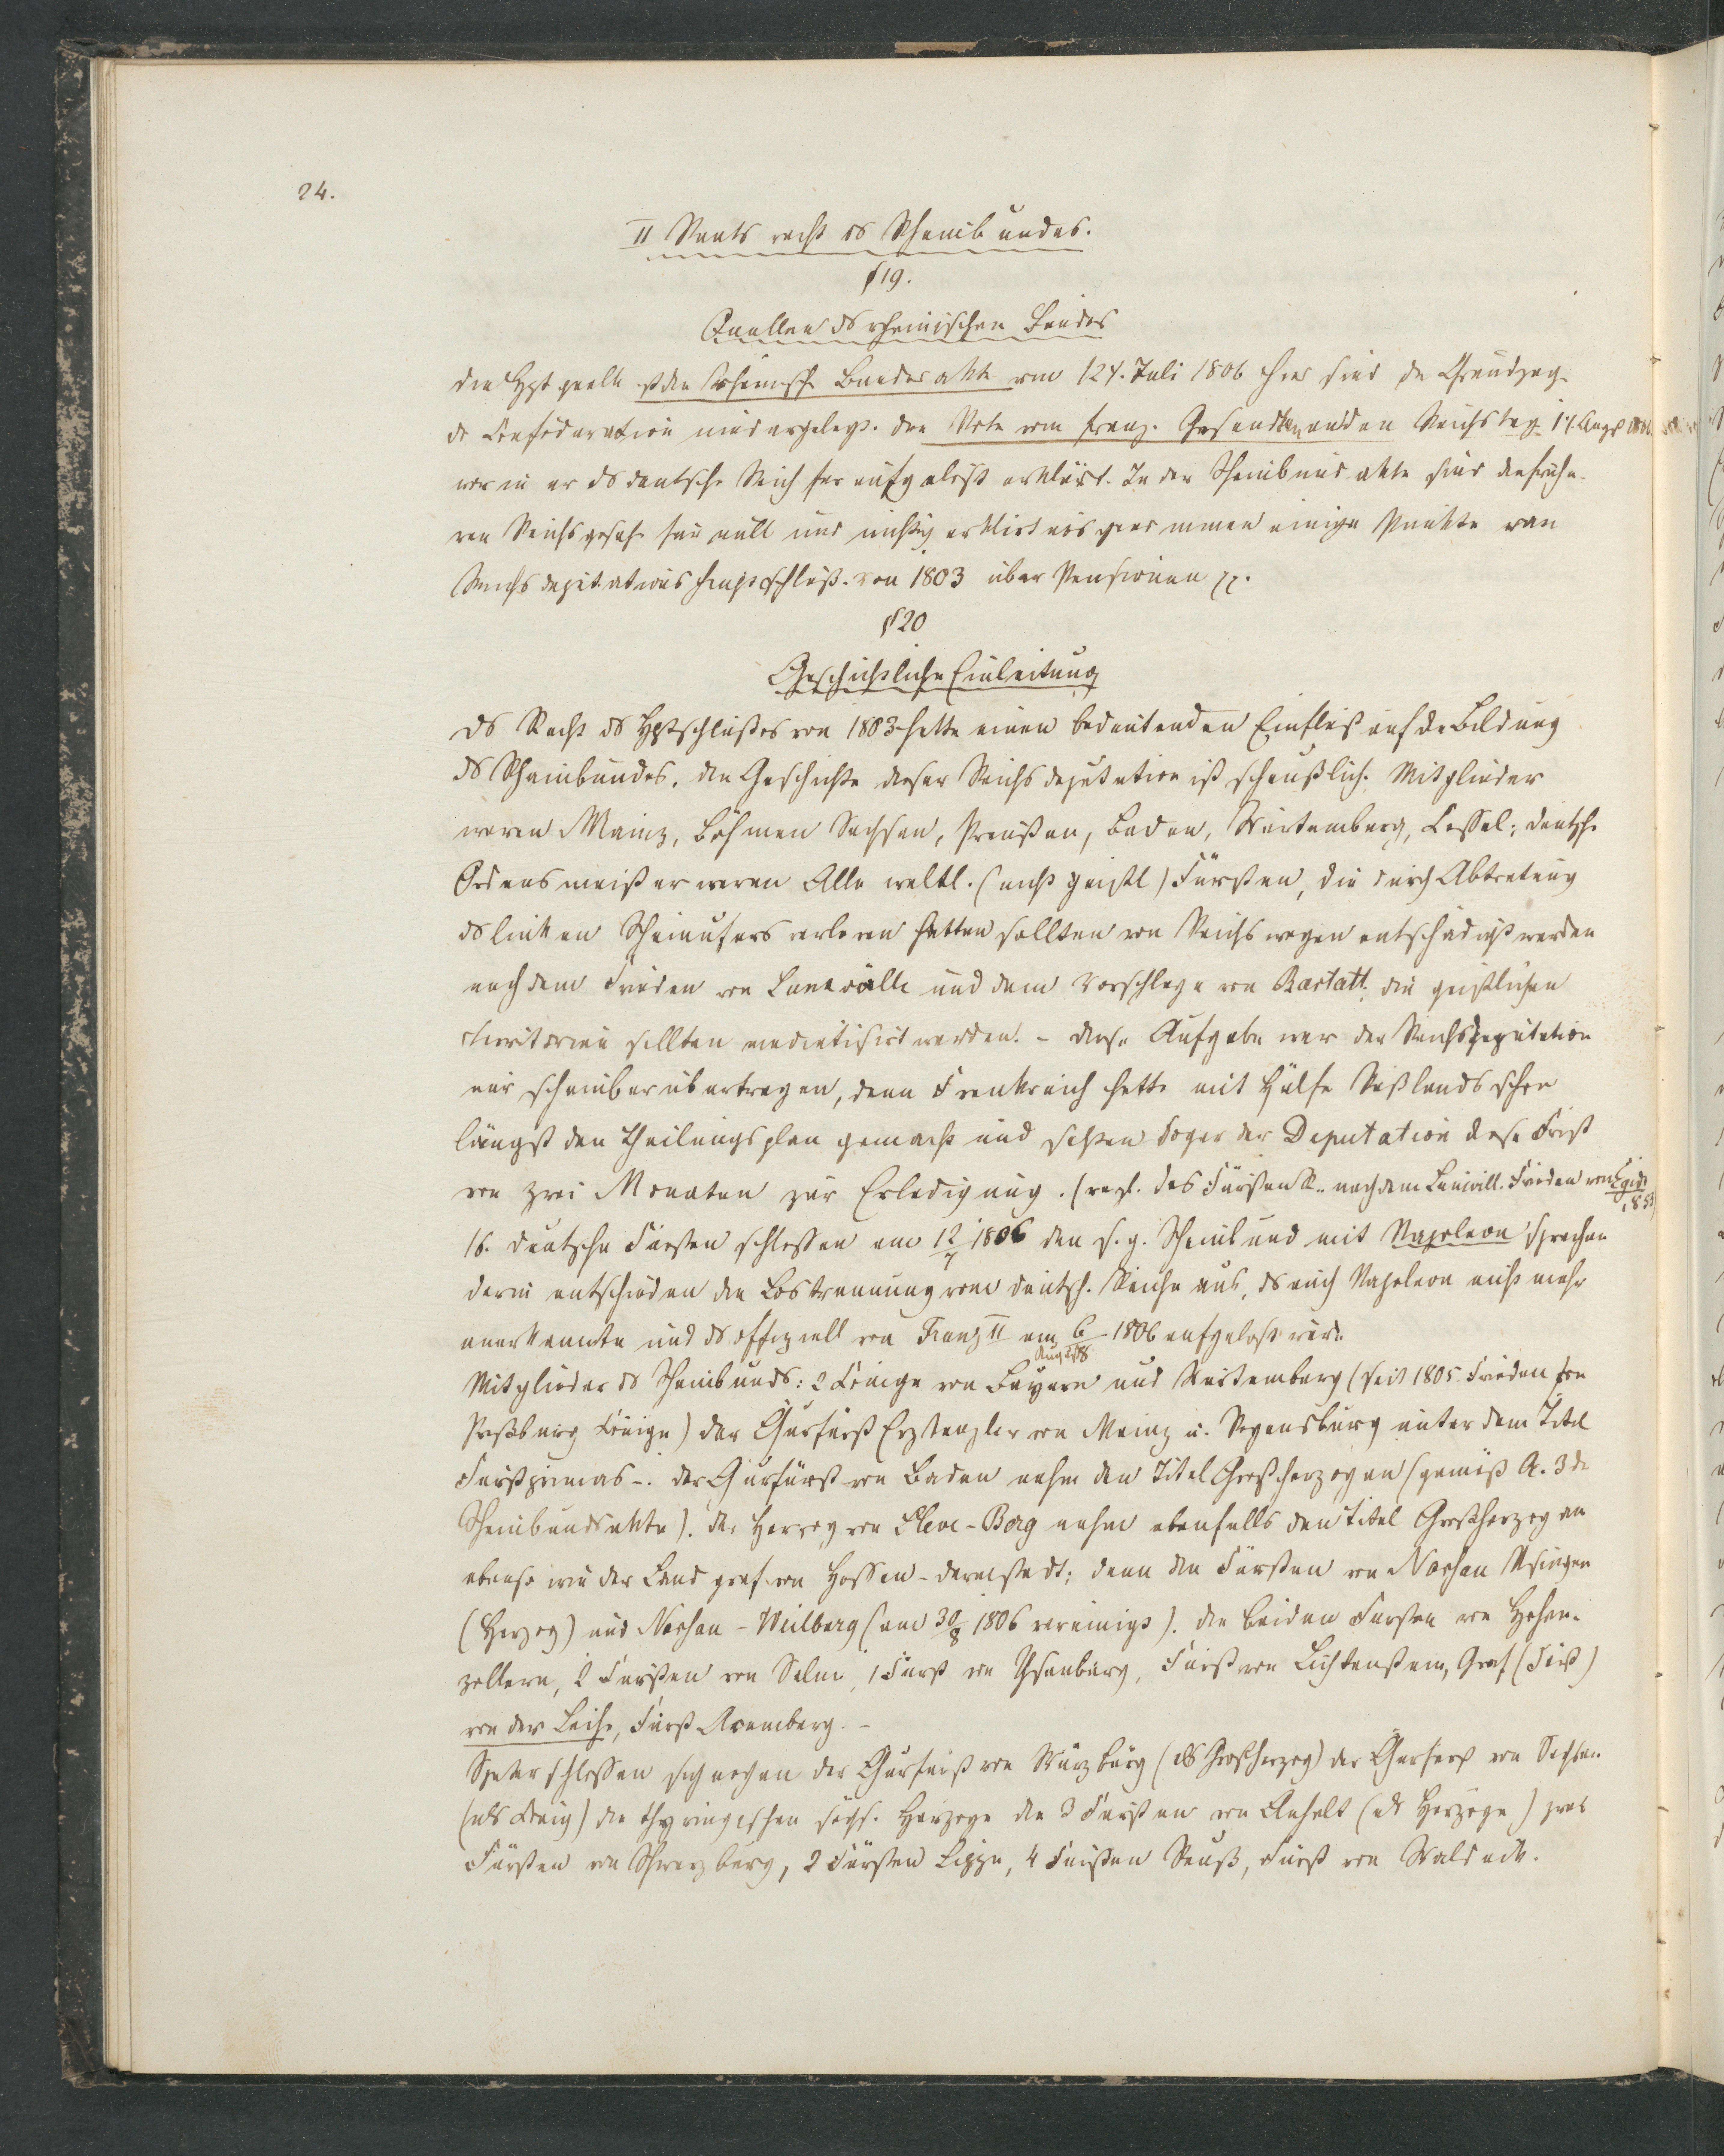 24.
II Staats recht ds Rheinbundes.
§ 19.
Quellen ds rheinischen Bundes
die Hptquelle ist die rheinische Bundesakte vom 12ʸ. Juli 1806 hier sind die Grundzüge
der Confoederation niedergelegt. die Note vom franz. Gesandten an den Reichstag 1ʸ. Aug. 1806
worin er ds deutsche Reich für aufgelöst erklärt. In der Rheinbundakte sind die frühe-
ren Reichsgesetze für null und nichtig erklärt ausgenommen einige Punkte von
Reichsdeputationshauptschluß. von 1803 über Pensionen pp.
§ 20
Geschichtliche Einleitung
ds Recht ds Hptschlußes von 1803 hatte einen bedeutenden Einfluß auf de Bildung
ds Rheinbundes. die Geschichte dieser Reichsdeputation ist scheußlich. Mitglieder
waren Mainz, Böhmen Sachsen, Preußen, Baden, Würtemberg, Cassel; deutsche
Ordensmeister waren Alle weltl. (nicht geistl) Fürsten, die durch Abtretung
ds linken Rheinufers verloren hatten sollten von Reichs wegen entschädigt werden
nach dem Frieden von Luneville und dem Vorschlage von Rastatt, die geistlichen
Territorien sollten mediatisirt werden. – diese Aufgabe war der Reichsdeputation
nur scheinbar übertragen, denn Frankreich hatte mit Hülfe Rußlands schon
längst den Theilungsplan gemacht und setzten sogar der Deputation diese Frist
von zwei Monaten zur Erledigung. (vergl. des Fürstenr.. nach dem Lunévill. Frieden von Egidi 1853)
16. deutsche Fürsten schlossen am 12/7 1806 den s. g. Rheinbund mit Napoleon sprachen
darin entschieden die Lostrennung vom deutsch. Reiche aus, ds auch Napoleon nicht mehr
anerkannte und ds offiziell von Franz II am 6/August 1806 aufgelöst wird.
Mitglieder ds Rheinbunds: 2 Könige von Bayern und Würtemberg (seit 1805. Frieden von
Preßburg Könige) der Churfürst Erzkanzler von Mainz u. Regensburg unter dem Titel
Fürstprimas –. der Churfürst von Baden nahm den Titel Großherzog an (gemäß A. 3 de
Rheinbundsakte). der Herzog von Cleve-Berg nahm ebenfalls den Titel Großherzog an
ebenso wie der Landgraf von Hessen-Darmstadt; dann die Fürsten von Nassau Usingen
(Herzog) und Nassau-Weilburg (am 30/8 1806 vereinigt). die beiden Fürsten von Hohen-
zollern, 2 Fürsten von Salm, 1 Fürst von Ysenburg, Fürst von Lichtenstein, Graf (Fürst)
von der Leihe, Fürst Aremberg. –
Später schlossen sich noch an der Churfürst von Würzburg (als Großherzog) der Churfürst von Sachsen
(als König) die thyringischen sächs. Herzoge die 3 Fürsten von Anhalt (als Herzoge) zwei
Fürsten von Schwarzburg, 2 Fürsten Lippe, 4 Fürsten Reuß, Fürst von Waldeck.